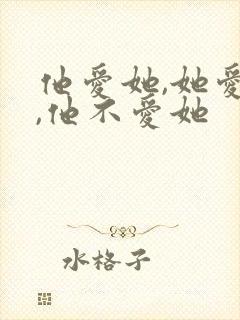 他爱她,她爱
,他不爱她
水格子